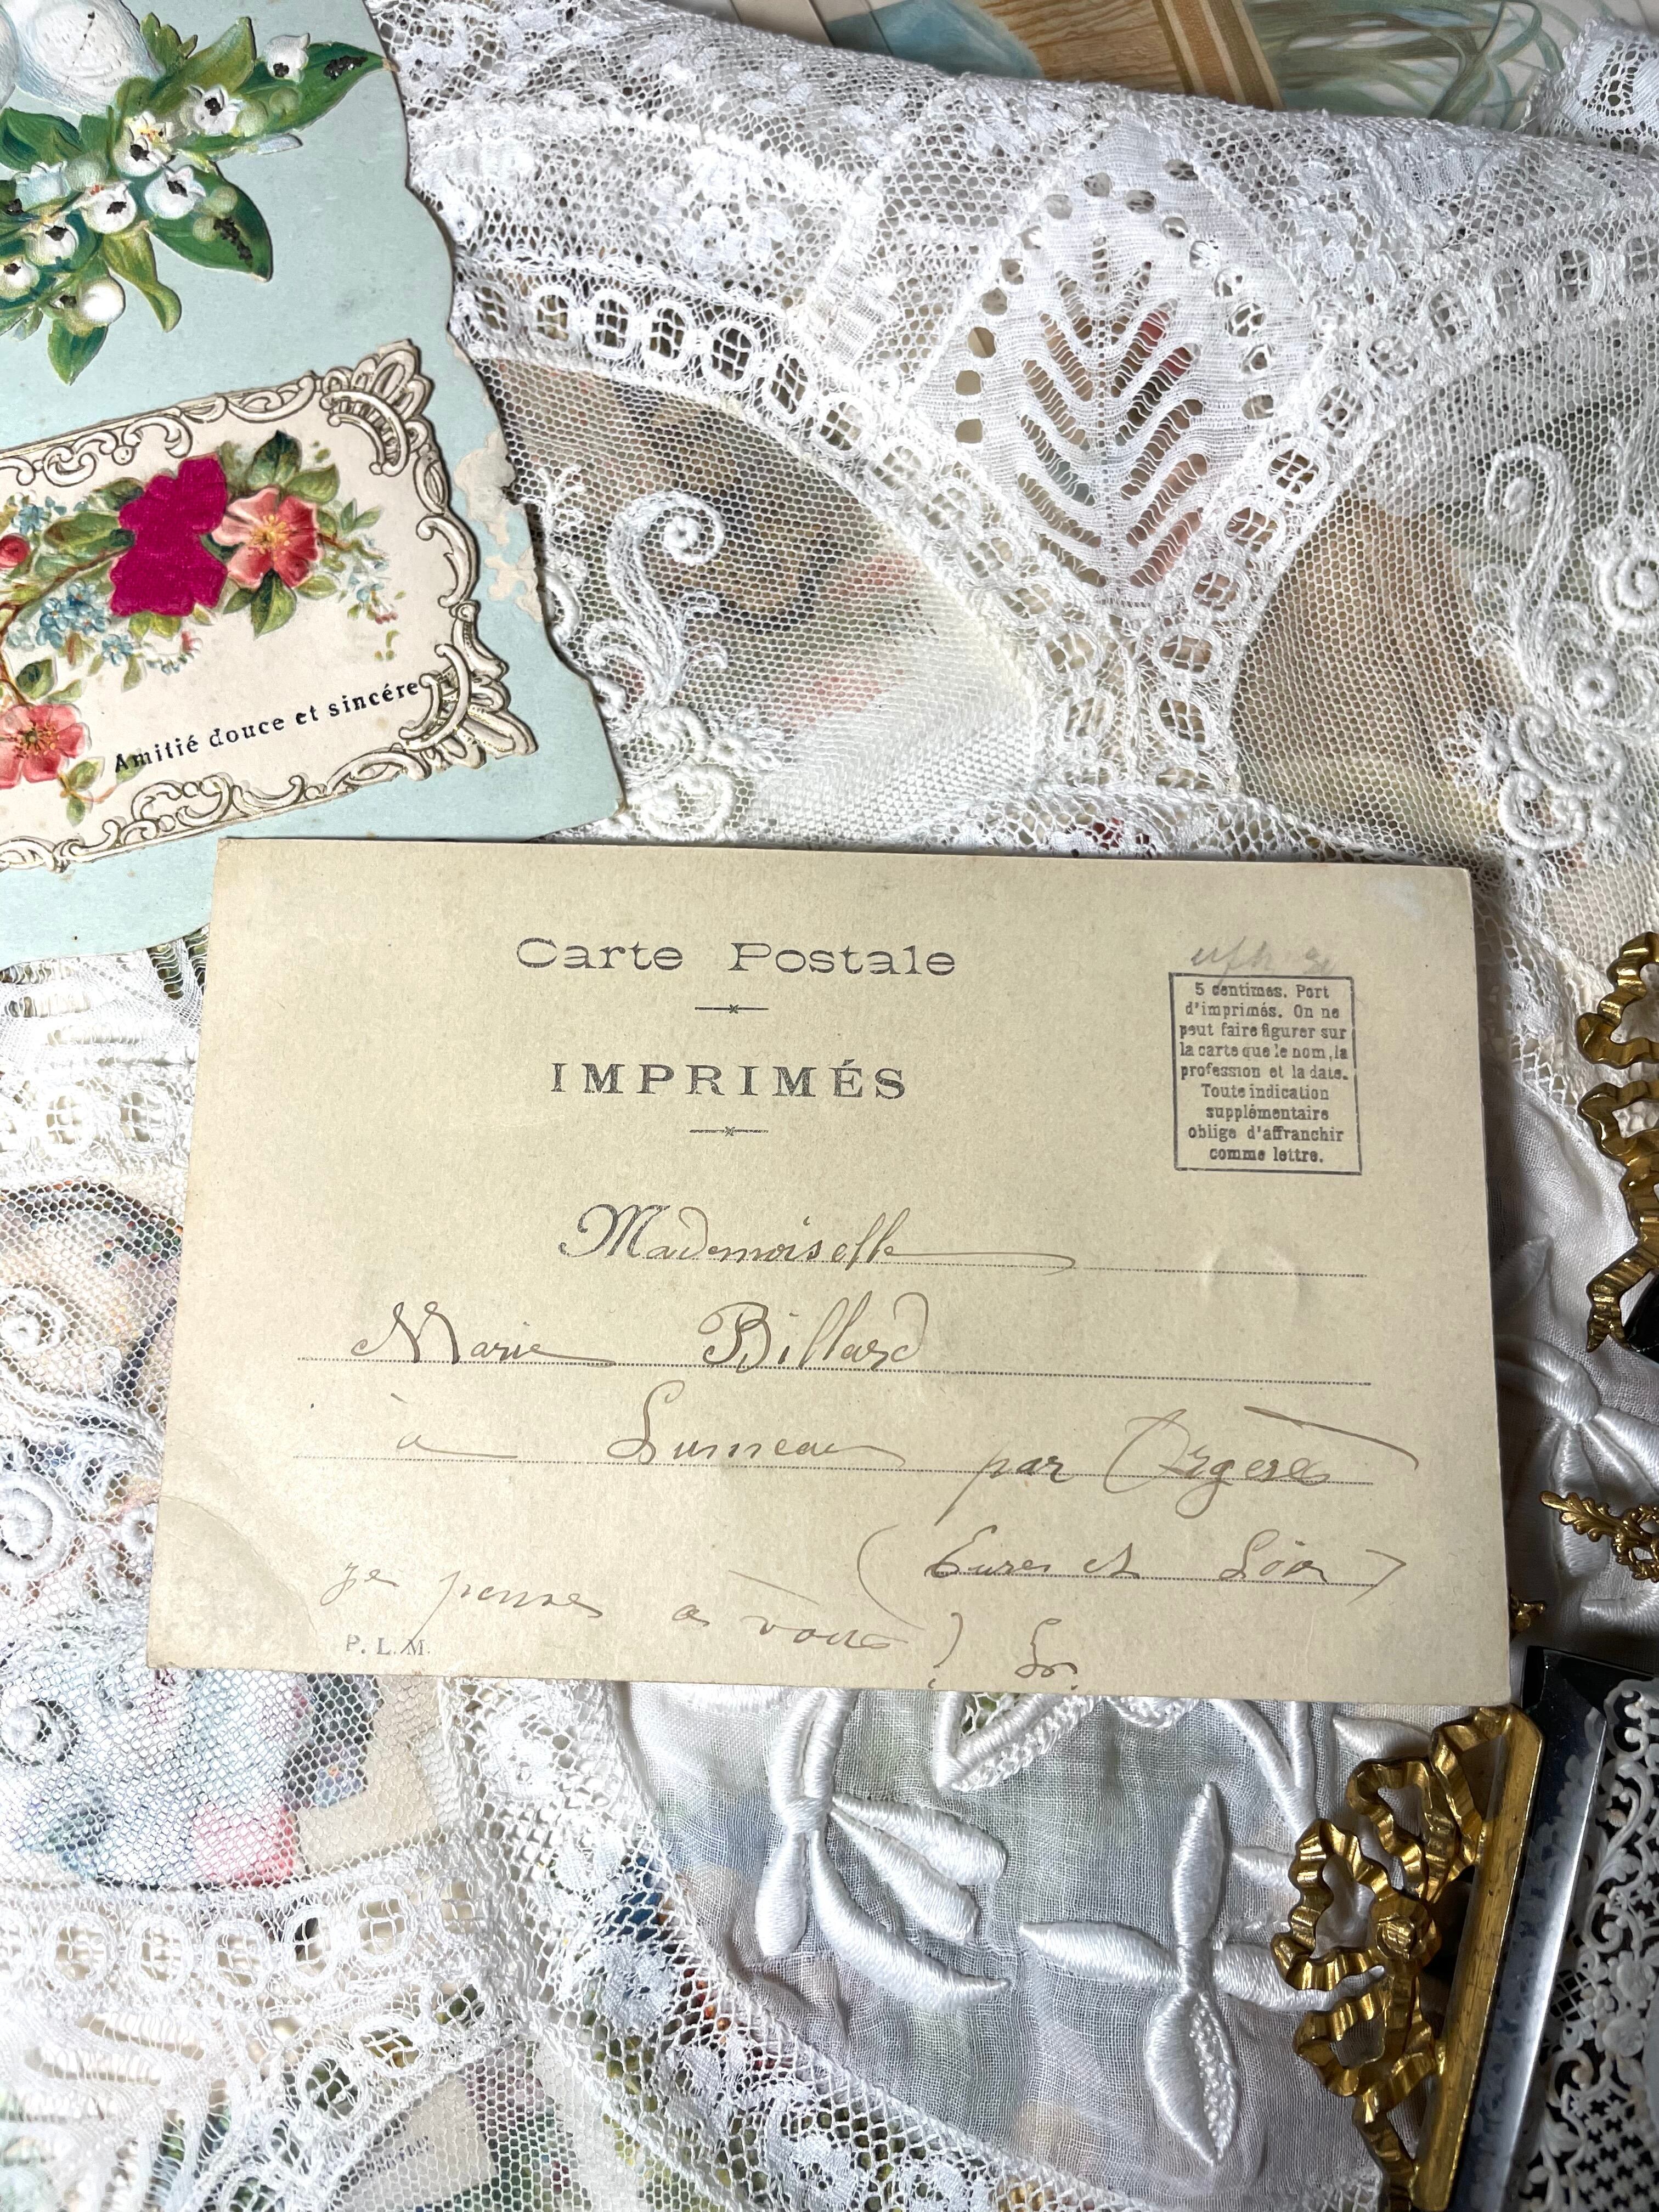 Amitié douce et sincére
Carte Postale
IMPRIMÉS
5 centimes. Port
d'imprimés. On ne
peut faire figurer sur
la carte que le nom, la
profession et la date.
Toute indication
supplémentaire
oblige d'affranchir
comme lettre.
Mademoiselle
Marie Billard
à Lumeau par Orgeres
(Eure et Loir)
je penses a vous !
P. L. M.